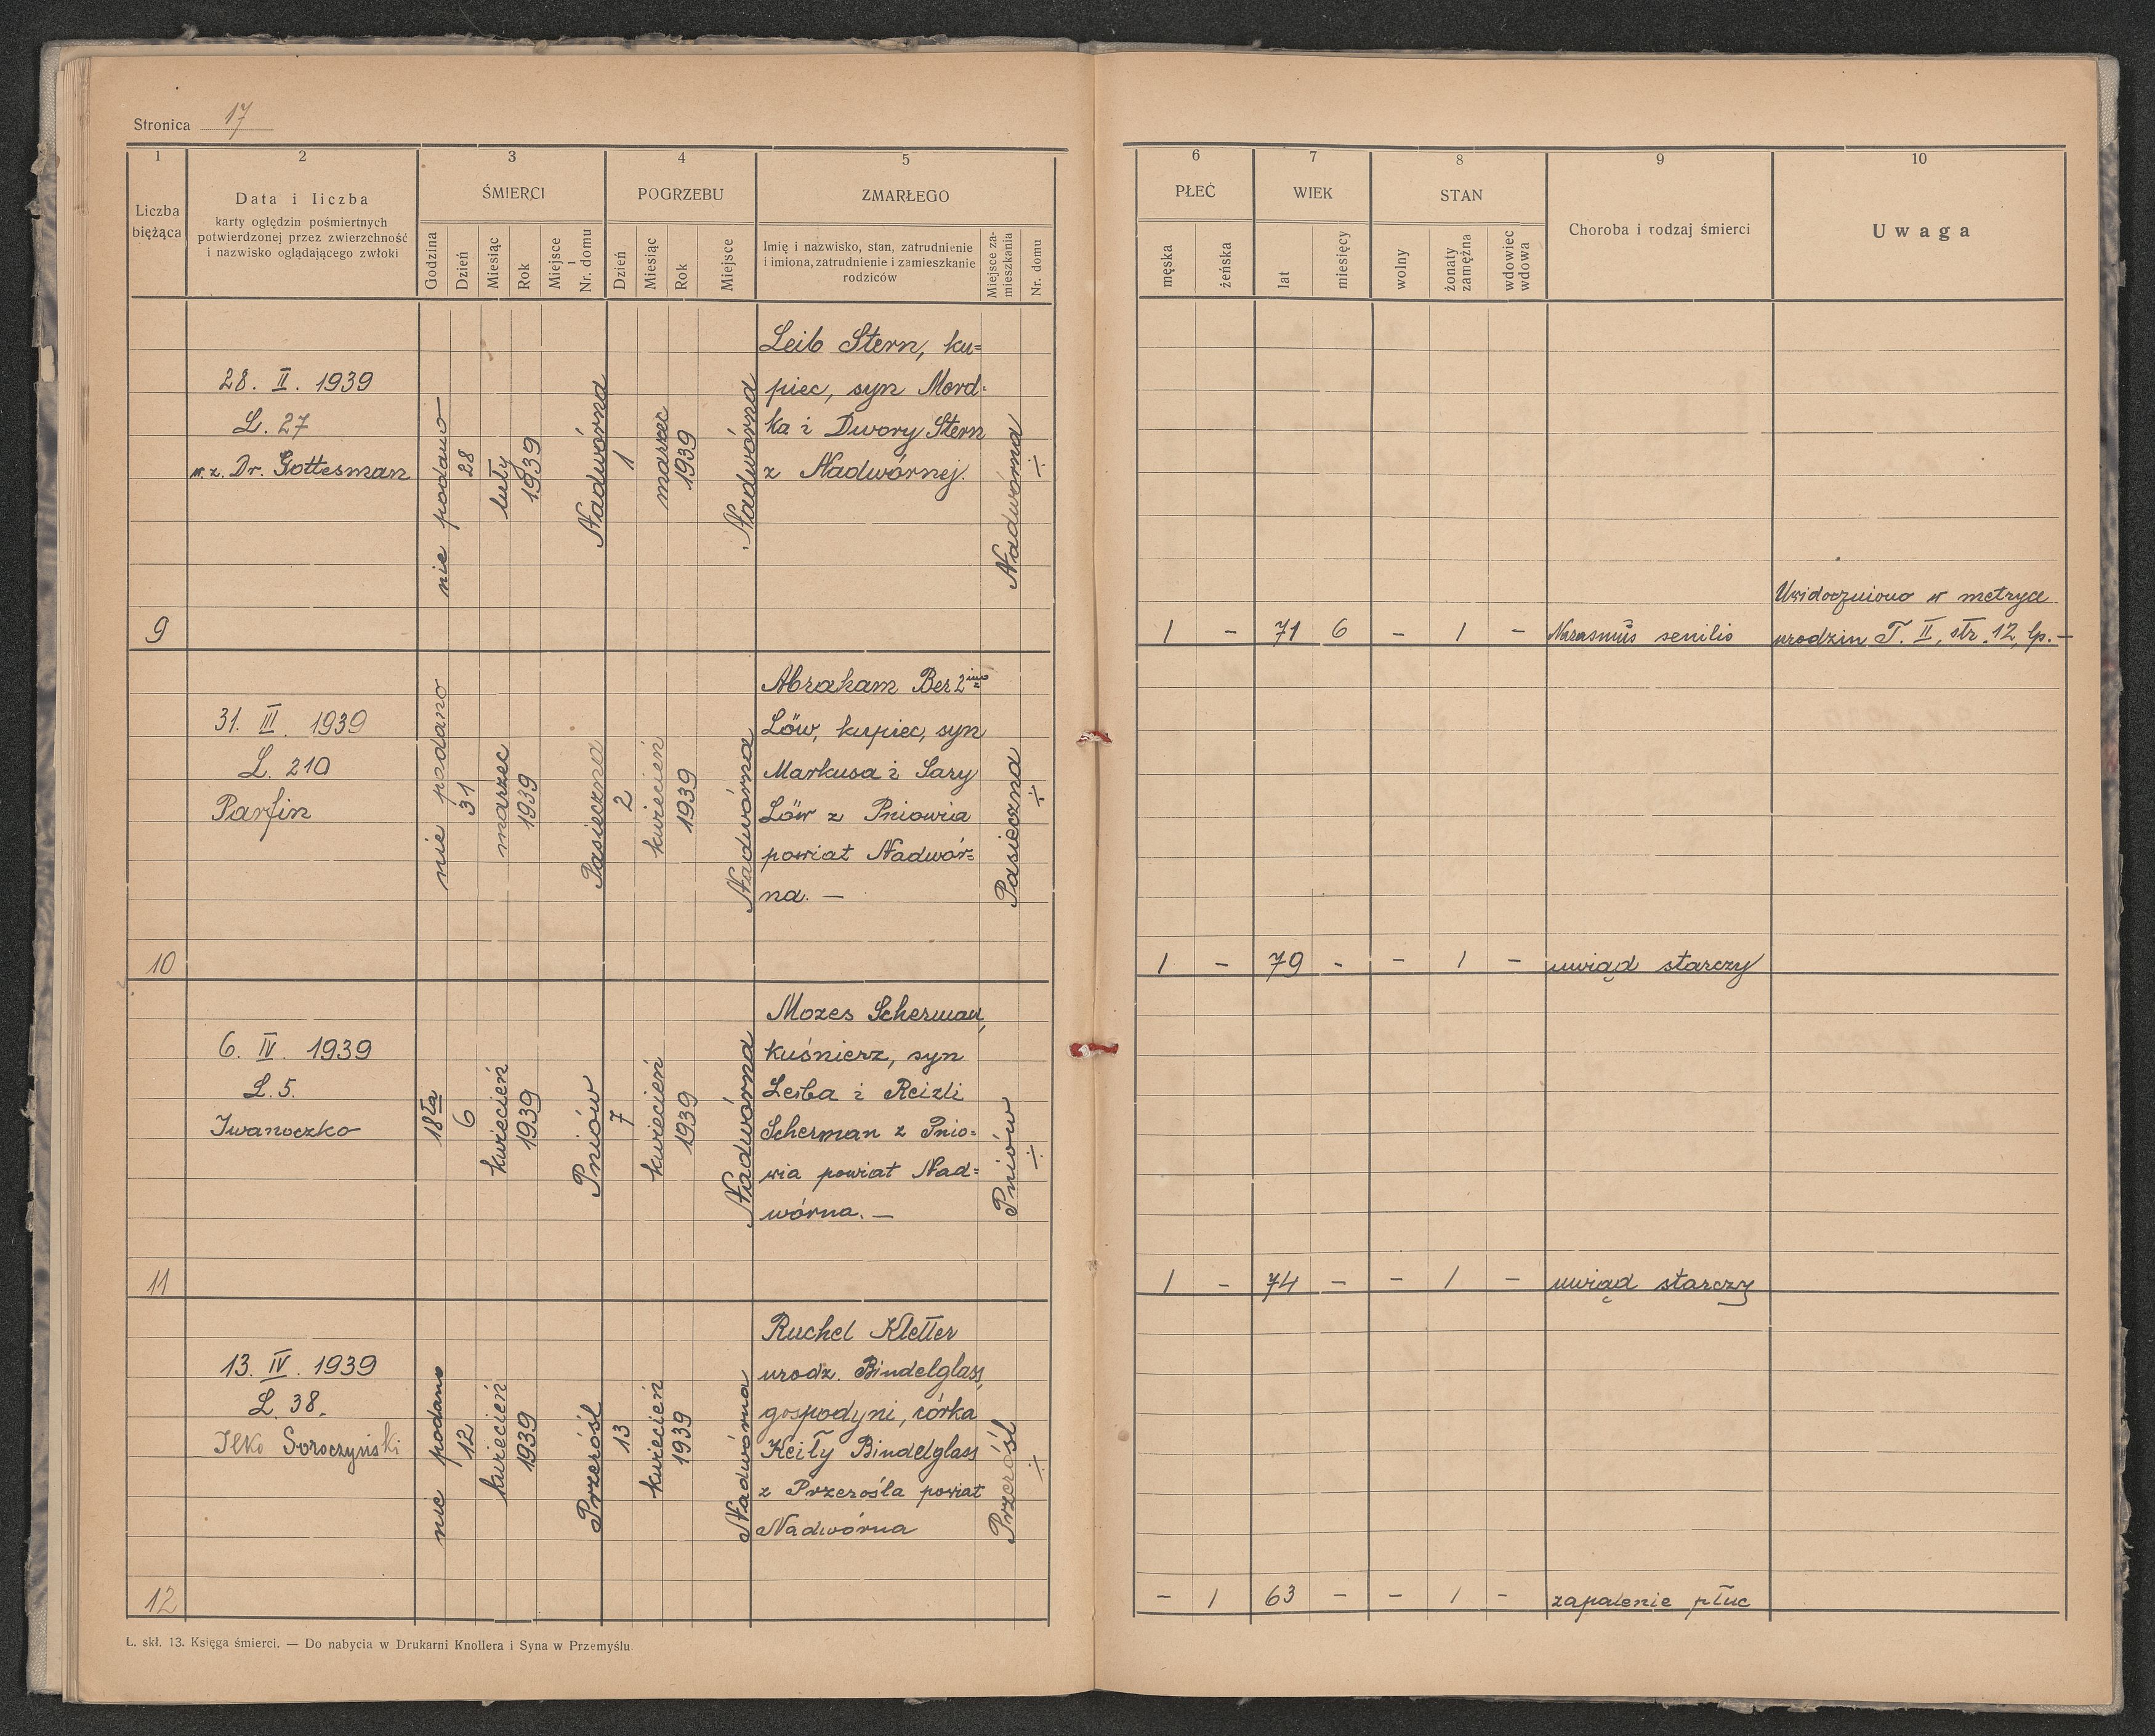 Stronica 17
1 2 3 4 5 6 7 8 9 10
Liczba bieżąca
Data i liczba
karty oględzin pośmiertnych
potwierdzonej przez zwierzchność
i nazwisko oglądającego zwłoki
ŚMIERCI
Godzina Dzień Miesiąc Rok Miejsce i Nr. domu
POGRZEBU
Dzień Miesiąc Rok Miejsce
ZMARŁEGO
Imię i nazwisko, stan, zatrudnienie
i imiona, zatrudnienie i zamieszkanie
rodziców
Miejsce za-
mieszkania
Nr. domu
PŁEĆ
męska żeńska
WIEK
lat miesięcy
STAN
wolny
żonaty zamężna
wdowiec wdowa
Choroba i rodzaj śmierci
Uwaga
9
28. II. 1939
L. 27
w. z. Dr. Gottesman
nie podano
28
luty
1939
Nadwórna
1
marzec
1939
Nadwórna
Leib Stern, ku=
piec, syn Mord=
ka i Dwory Stern
z Nadwórnej.
Nadwórna
÷
1 - 71 6 - 1 -
senilis
Uwidoczniono w metryce
urodzin T. II, str. 12, lp. —
10
31. III. 1939
L. 210
Parfin
nie podano
31
marzec
1939
Pasieczna
2
kwiecień
1939
Nadwórna
Abraham Ber 2 imo
Löw, kupiec, syn
Markusa i Sary
Löw z Pniowia
powiat Nadwór=
na. —
Pasieczna
÷
1 - 79 - - 1 - uwiąd starczy
11
6. IV. 1939
L. 5.
Iwanoczko
18ta
6
kwiecień
1939
Pniów
7
kwiecień
1939
Nadwórna
Mozes Scherman,
kuśnierz, syn
Leiba i Reizli
Scherman z Pnio=
wia powiat Nad=
wórna. —
Pniów
÷
1 - 74 - - 1 - uwiąd starczy
12
13. IV. 1939
L. 38.
Ilko Soroczyński
nie podano
12
kwiecień
1939
Przerośl
13
kwiecień
1939
Nadwórna
Ruchel Kletter
urodz. Bindelglass,
gospodyni, córka
Keiły Bindelglass
z Przerośla powiat
Nadwórna
Przerośl
÷
- 1 63 - - 1 - zapalenie płuc
L. skł. 13. Księga śmierci. — Do nabycia w Drukarni Knollera i Syna w Przemyślu